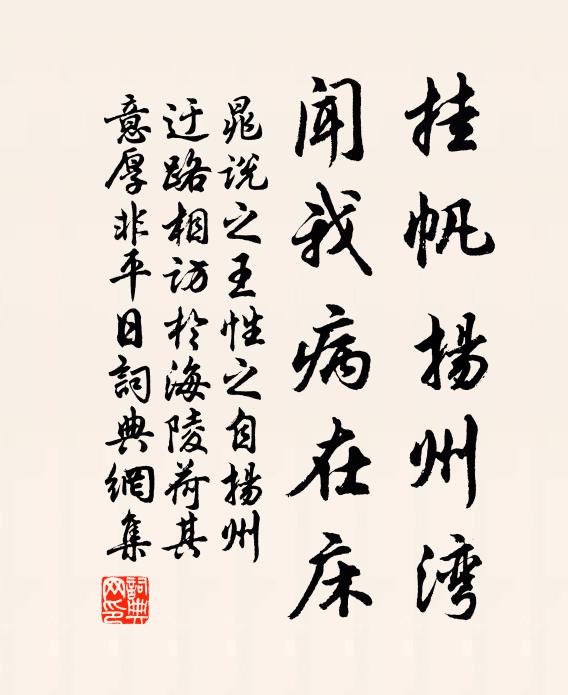 挂帆揚州湾
闻我病在床
晁说之王性之自揚州
迂路相访於海陵荷其
意厚非平日詞典網集
詞典網印